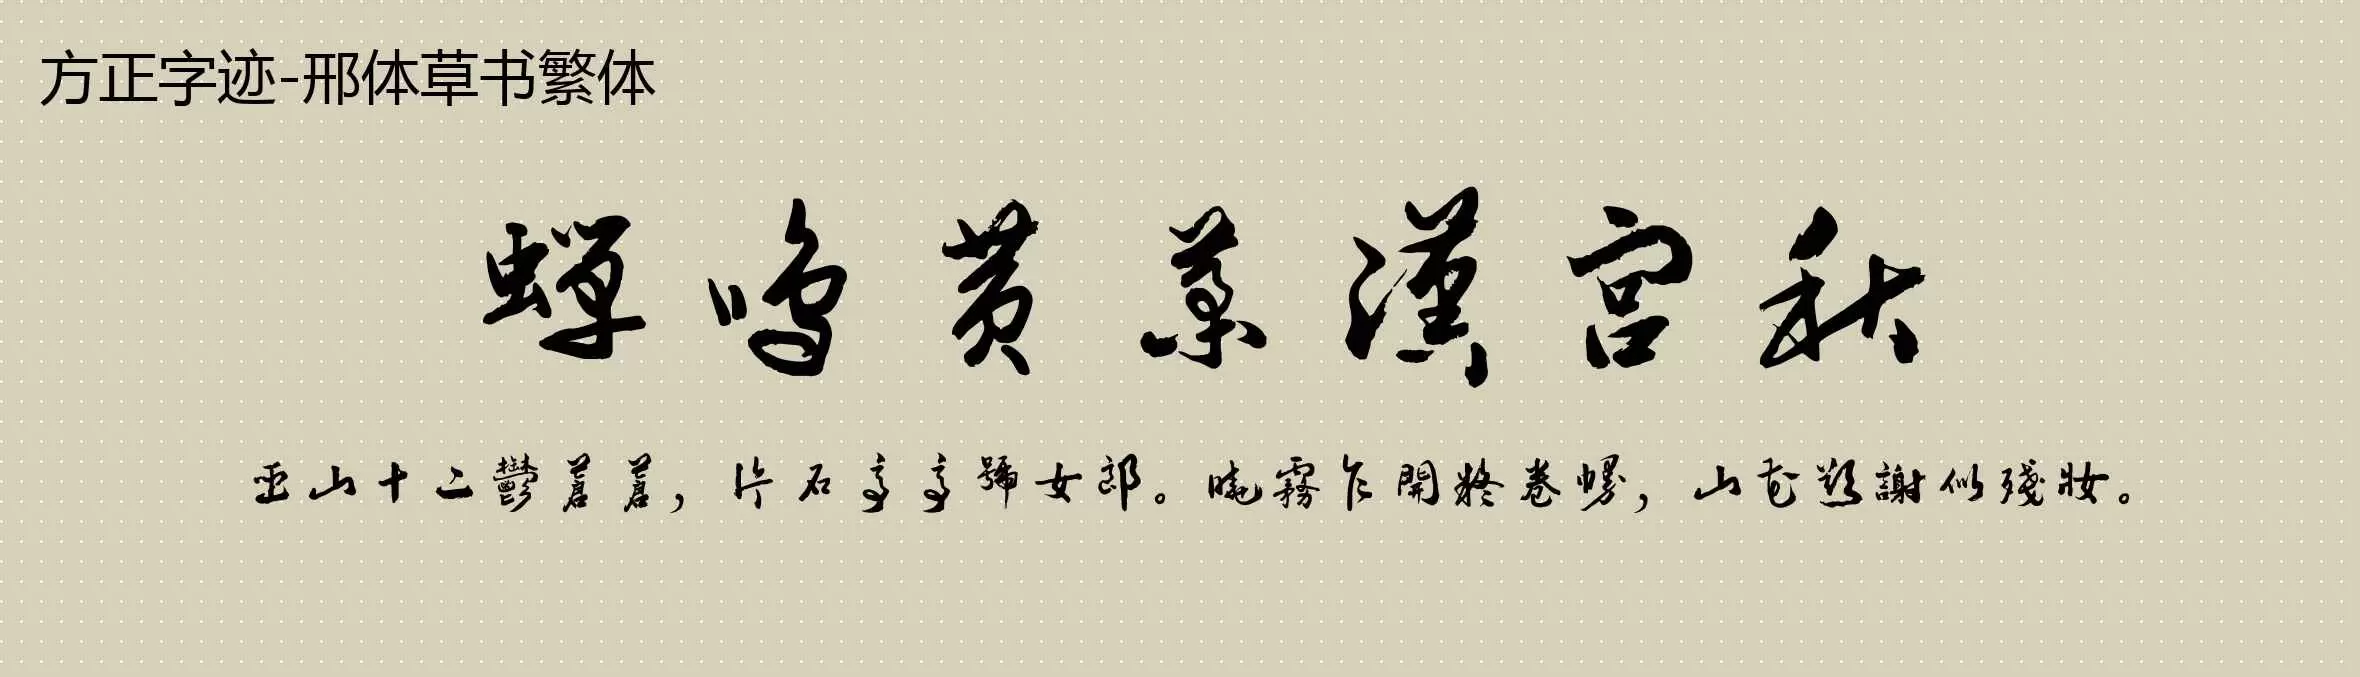 方正字迹-邢体草书繁体
蟬鳴黄葉漢宮秋
巫山十二鬱蒼蒼，片石亭亭號女郎。曉霧乍開疑卷幔，山花欲謝似殘妝。